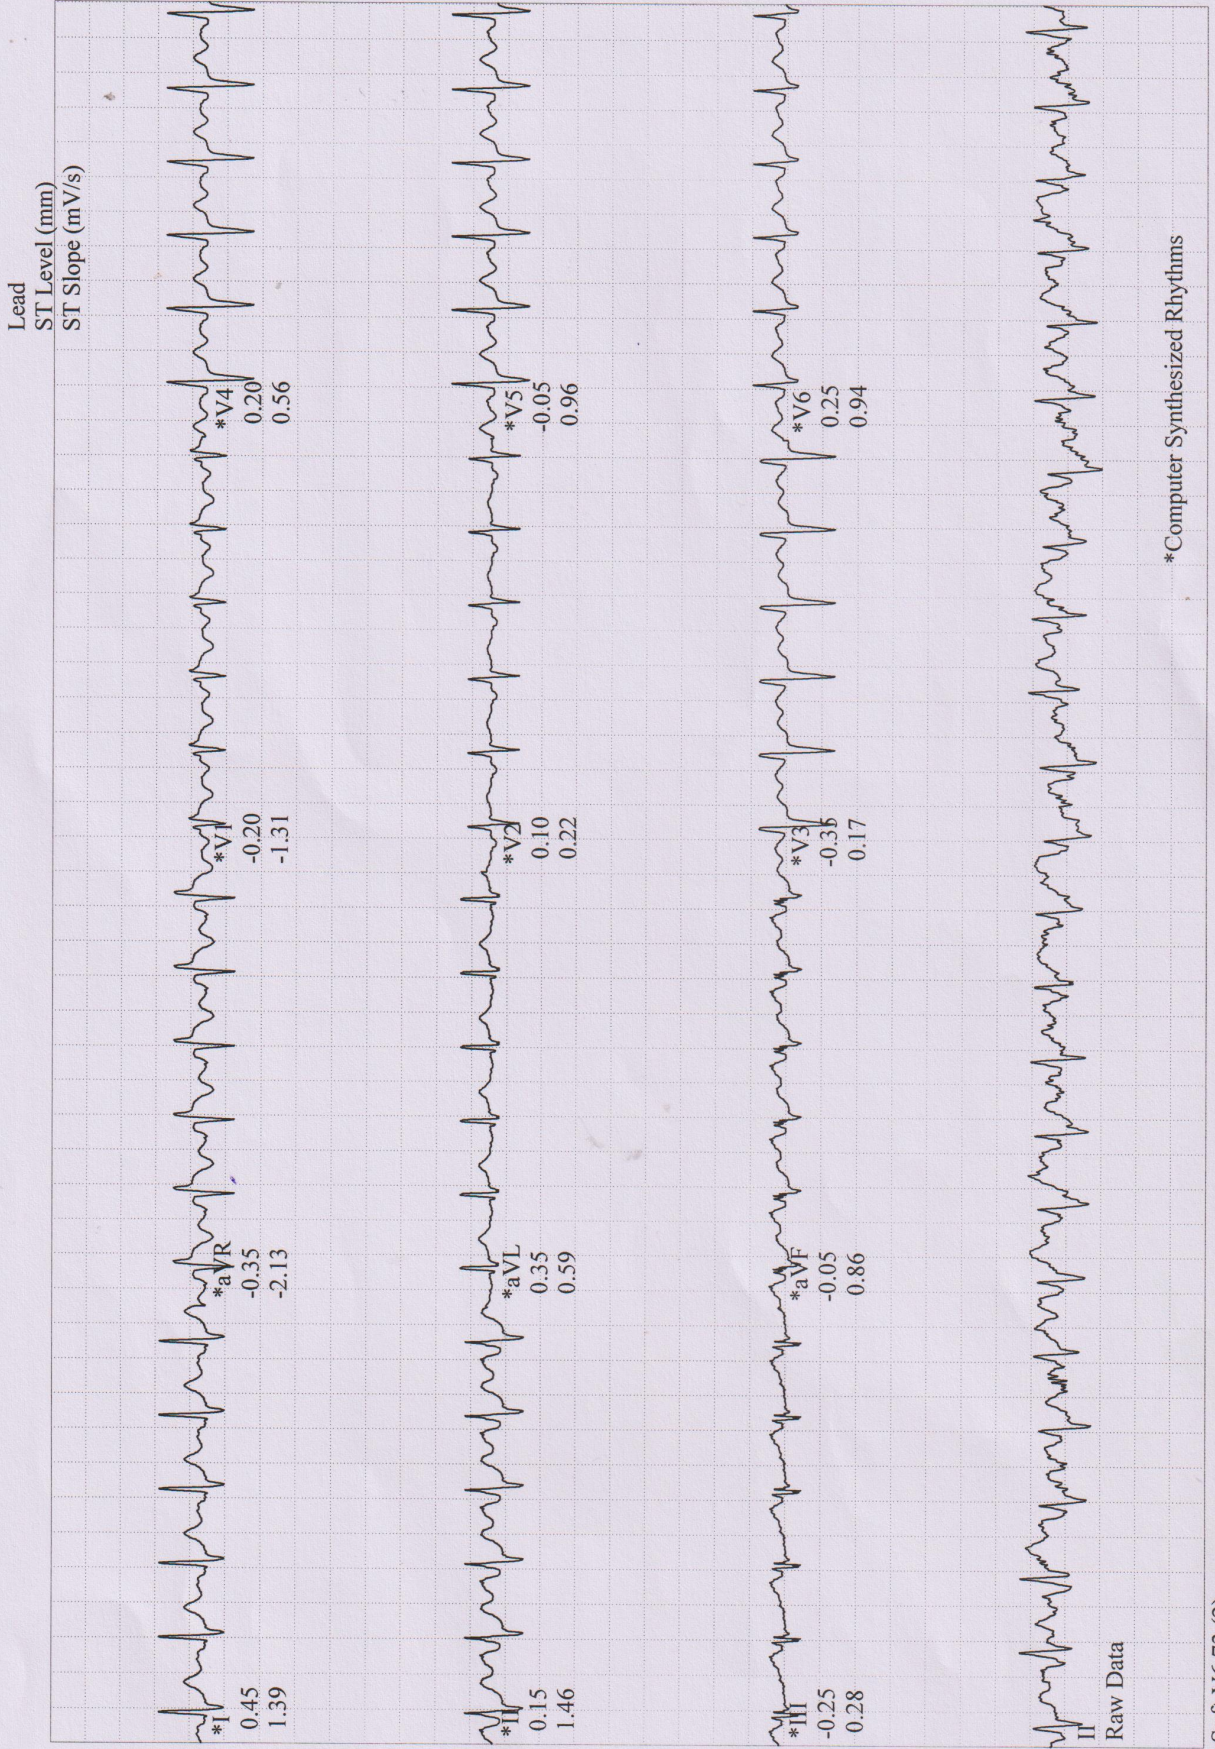 Lead
ST Level (mm)
ST Slope (mV/s)
*I
0.45
1.39
*aVR
-0.35
-2.13
*V1
-0.20
-1.31
*V4
0.20
0.56
*II
0.15
1.46
*aVL
0.35
0.59
*V2
0.10
0.22
*V5
-0.05
0.96
*III
-0.25
0.28
*aVF
-0.05
0.86
*V3
-0.35
0.17
*V6
0.25
0.94
II
Raw Data
*Computer Synthesized Rhythms